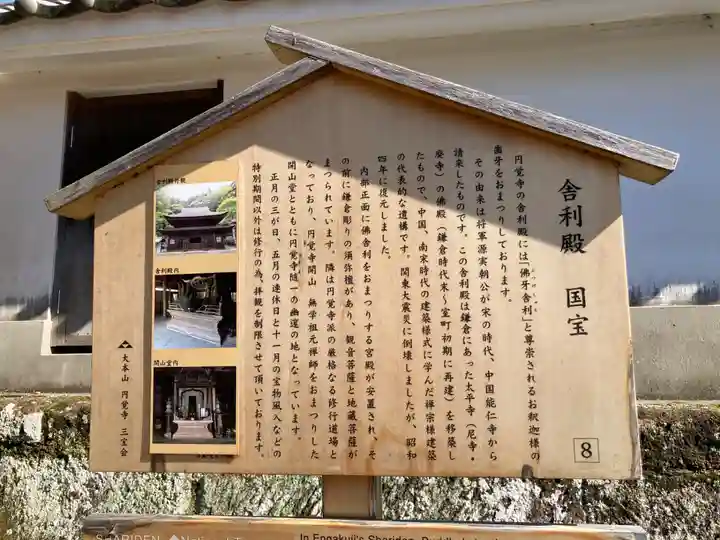 舎利殿 国宝
円覚寺の舎利殿には「佛牙舎利」と尊崇されるお釈迦様の
ぶつげしゃり
歯牙をおまつりしております。
その由来は将軍源実朝公が宋の時代、中国能仁寺から
請来したものです。この舎利殿は鎌倉にあった太平寺(尼寺・
廃寺)の佛殿(鎌倉時代末〜室町初期に再建)を移築し
たもので、中国、南宋時代の建築様式に学んだ禅宗様建築
の代表的な遺構です。関東大震災に倒壊しましたが、昭和
四年に復元しました。
内部正面に佛舎利をおまつりする宮殿が安置され、そ
の前に鎌倉彫りの須弥壇があり、観音菩薩と地蔵菩薩が
まつられています。隣は円覚寺派の厳格なる修行道場と
なっており、円覚寺開山 無学祖元禅師をおまつりした
開山堂とともに円覚寺随一の幽邃の地となっています。
正月の三が日、五月の連休日と十一月の宝物風入などの
特別期間以外は修行の為、拝観を制限させて頂いております。
舎利殿外観
舎利殿内
開山堂内
大本山 円覚寺 三宝会
8
SHARIDEN
In Engakuji's Shariden,